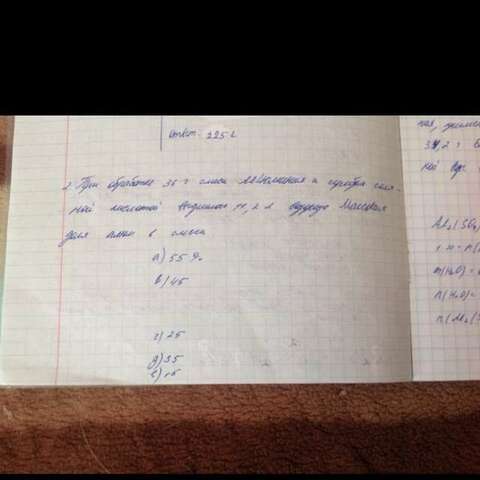 Ответ: 225 г
2. При обработке 36 г смеси алюминия и серебра соля-
ной кислотой выделилось 11,2 л водорода Массовая
доля алюм в смеси
а) 55 %
в) 45
г) 25
д) 35
е) 15
Al₂(SO₄
m(H₂O) =
n(H₂O) =